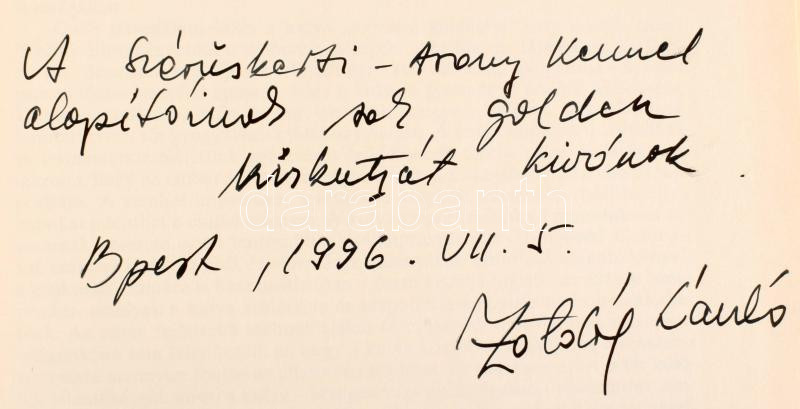 A Szérűskerti - Arany Kennel
alapítóinak sok golden
kiskutyát kívánok.
Bpest, 1996. VII. 5.
Zöldág László
darabanth